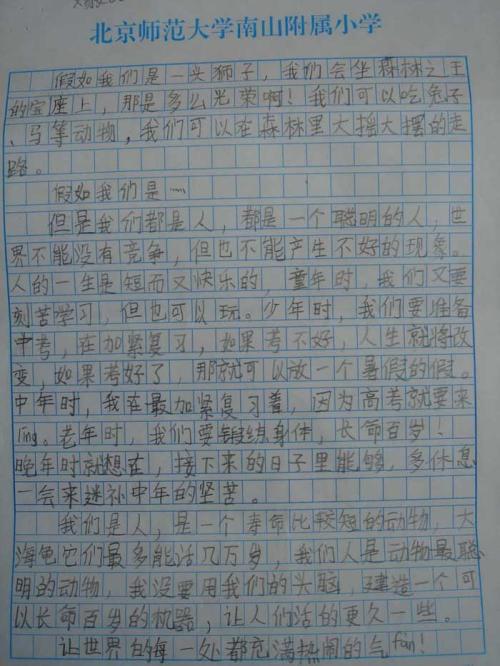 北京师范大学南山附属小学
假如我们是一头狮子，我们会坐森林之王
的宝座上，那是多么光荣啊！我们可以吃兔子
、马等动物，我们可以在森林里大摇大摆的走
路。
假如我们是……
但是我们都是人，都是一个聪明的人，世
界不能没有竞争，但也不能产生不好的现象。
人的一生是短而又快乐的，童年时，我们又要
刻苦学习，但也可以玩。少年时，我们要准备
中考，在加紧复习，如果考不好，人生就将改
变，如果考好了，那就可以放一个暑假的假。
中年时，我在最加紧复习着，因为高考就要来
ling。老年时，我们要锻练身体，长命百岁！
晚年时就想在，接下来的日子里能够，多休息
一会来迷补中年的坚苦。
我们是人，是一个寿命比较短的动物，大
海龟它们最多能活几万岁，我们人是动物最聪
明的动物，我没要用我们的头脑，建造一个可
以长命百岁的机器，让人们活的更久一些。
让世界的每一处都充满热闹的气fen！